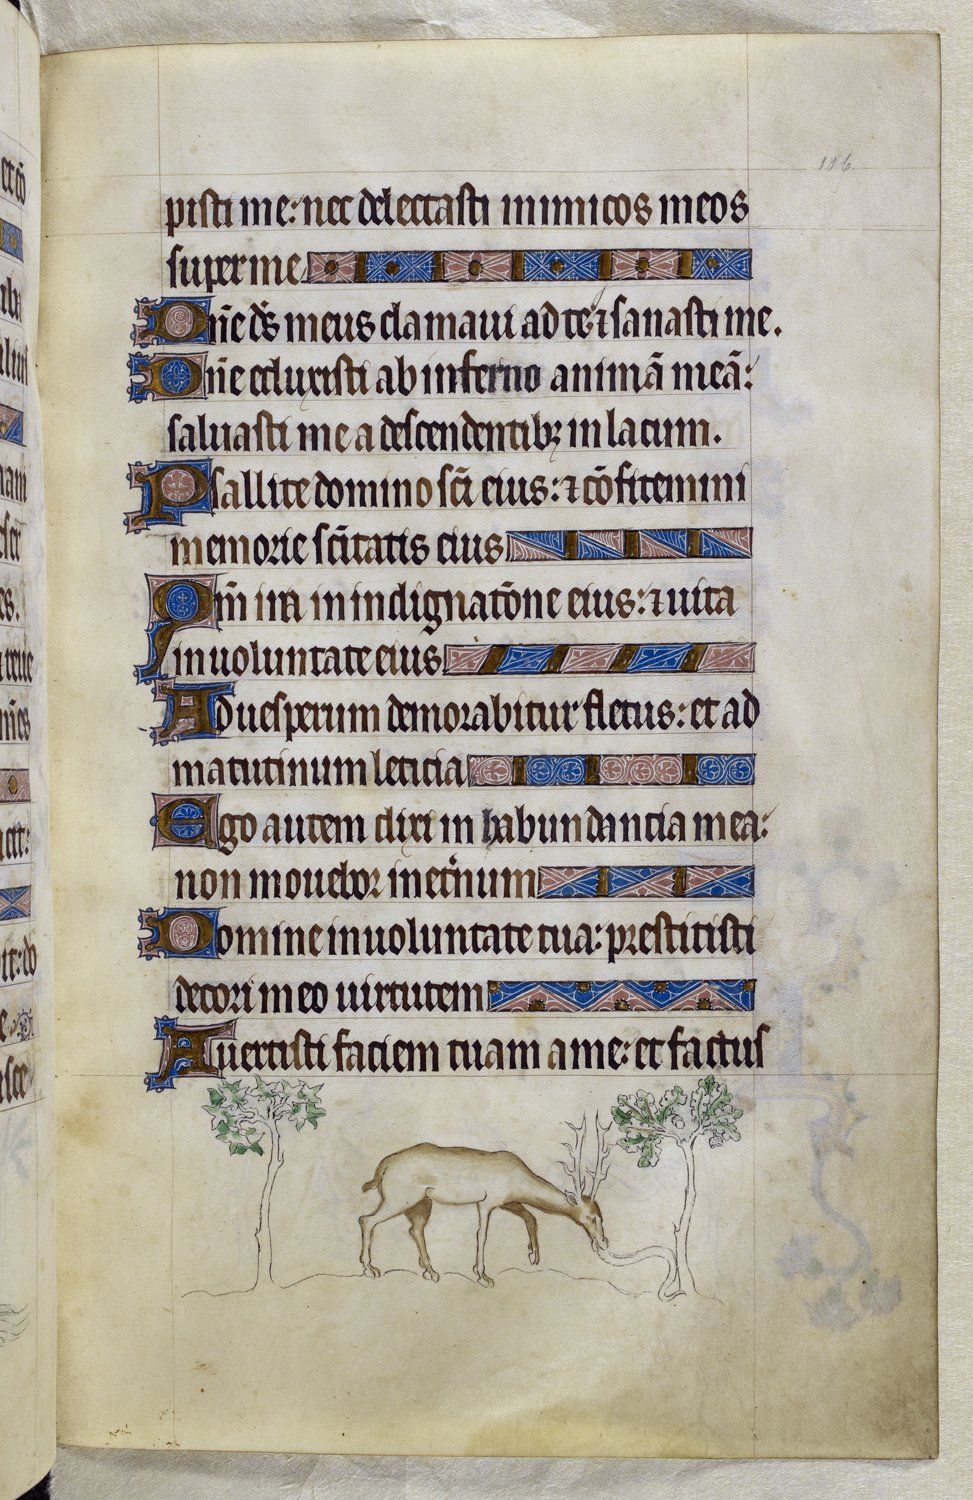 116.
pisti me: nec delectasti inimicos meos
super me
Dñe ds̃ meus clamaui ad te ⁊ sanasti me.
Dñe eduxisti ab inferno animã meã:
saluasti me a descendentibꝫ in lacum.
Psallite domino scĩ eius: ⁊ cõfitemini
memorie scĩtatis eius
Qm̃ ira in indignatõne eius: ⁊ uita
in uoluntate eius
Ad uesperum demorabitur fletus: et ad
matutinum leticia
Ego autem dixi in habundancia mea:
non mouebor in etñum
Domine in uoluntate tua: prestitisti
decori meo uirtutem
Auertisti faciem tuam a me: et factus